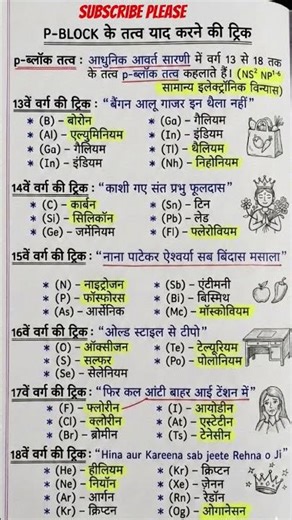 SUBSCRIBE PLEASE
P-BLOCK के तत्व याद करने की ट्रिक
p-ब्लॉक तत्व : आधुनिक आवर्त सारणी में वर्ग 13 से 18 तक
के तत्व p-ब्लॉक तत्व कहलाते हैं। (NS² NP¹⁻⁶
सामान्य इलेक्ट्रॉनिक विन्यास)
13वें वर्ग की ट्रिक : “बैंगन आलू गाजर इन थैला नहीं”
* (B) – बोरोन * (Ga) – गैलियम
* (Al) – एल्युमिनियम * (In) – इंडियम
* (Ga) – गैलियम * (Tl) – थैलियम
* (In) – इंडियम * (Nh) – निहोनियम
14वें वर्ग की ट्रिक : “काशी गए संत प्रभु फूलदास”
* (C) – कार्बन * (Sn) – टिन
* (Si) – सिलिकॉन * (Pb) – लेड
* (Ge) – जर्मेनियम * (Fl) – फ्लेरोवियम
15वें वर्ग की ट्रिक : “नाना पाटेकर ऐश्वर्या सब बिंदास मसाला”
* (N) – नाइट्रोजन * (Sb) – एंटीमनी
* (P) – फॉस्फोरस * (Bi) – बिस्मिथ
* (As) – आर्सेनिक * (Mc) – मॉस्कोवियम
16वें वर्ग की ट्रिक : “ओल्ड स्टाइल से टीपो”
* (O) – ऑक्सीजन * (Te) – टेल्यूरियम
* (S) – सल्फर * (Po) – पोलोनियम
* (Se) – सेलेनियम
17वें वर्ग की ट्रिक : “फिर कल आंटी बाहर आई टेंशन में”
* (F) – फ्लोरीन * (I) – आयोडीन
* (Cl) – क्लोरीन * (At) – एस्टेटीन
* (Br) – ब्रोमीन * (Ts) – टेनेसीन
18वें वर्ग की ट्रिक : “Hina aur Kareena sab jeete Rehna o Ji”
* (He) – हीलियम * (Kr) – क्रिप्टन
* (Ne) – नियॉन * (Xe) – ज़ेनन
* (Ar) – आर्गन * (Rn) – रेडॉन
* (Kr) – क्रिप्टन * (Og) – ओगानेसन